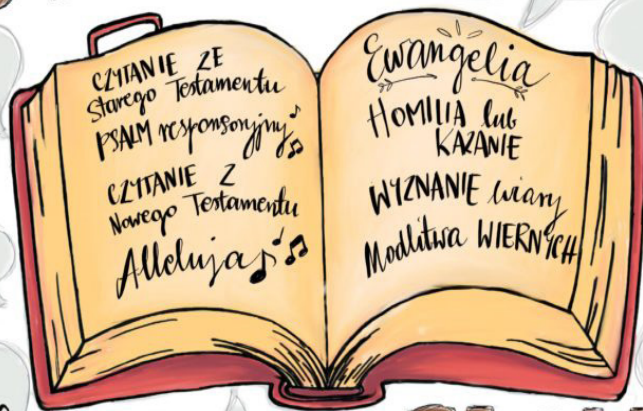 CZYTANIE ZE
Starego Testamentu
PSALM responsoryjny
CZYTANIE Z
Nowego Testamentu
Alleluja
Ewangelia
HOMILIA lub
KAZANIE
WYZNANIE wiary
Modlitwa WIERNYCH